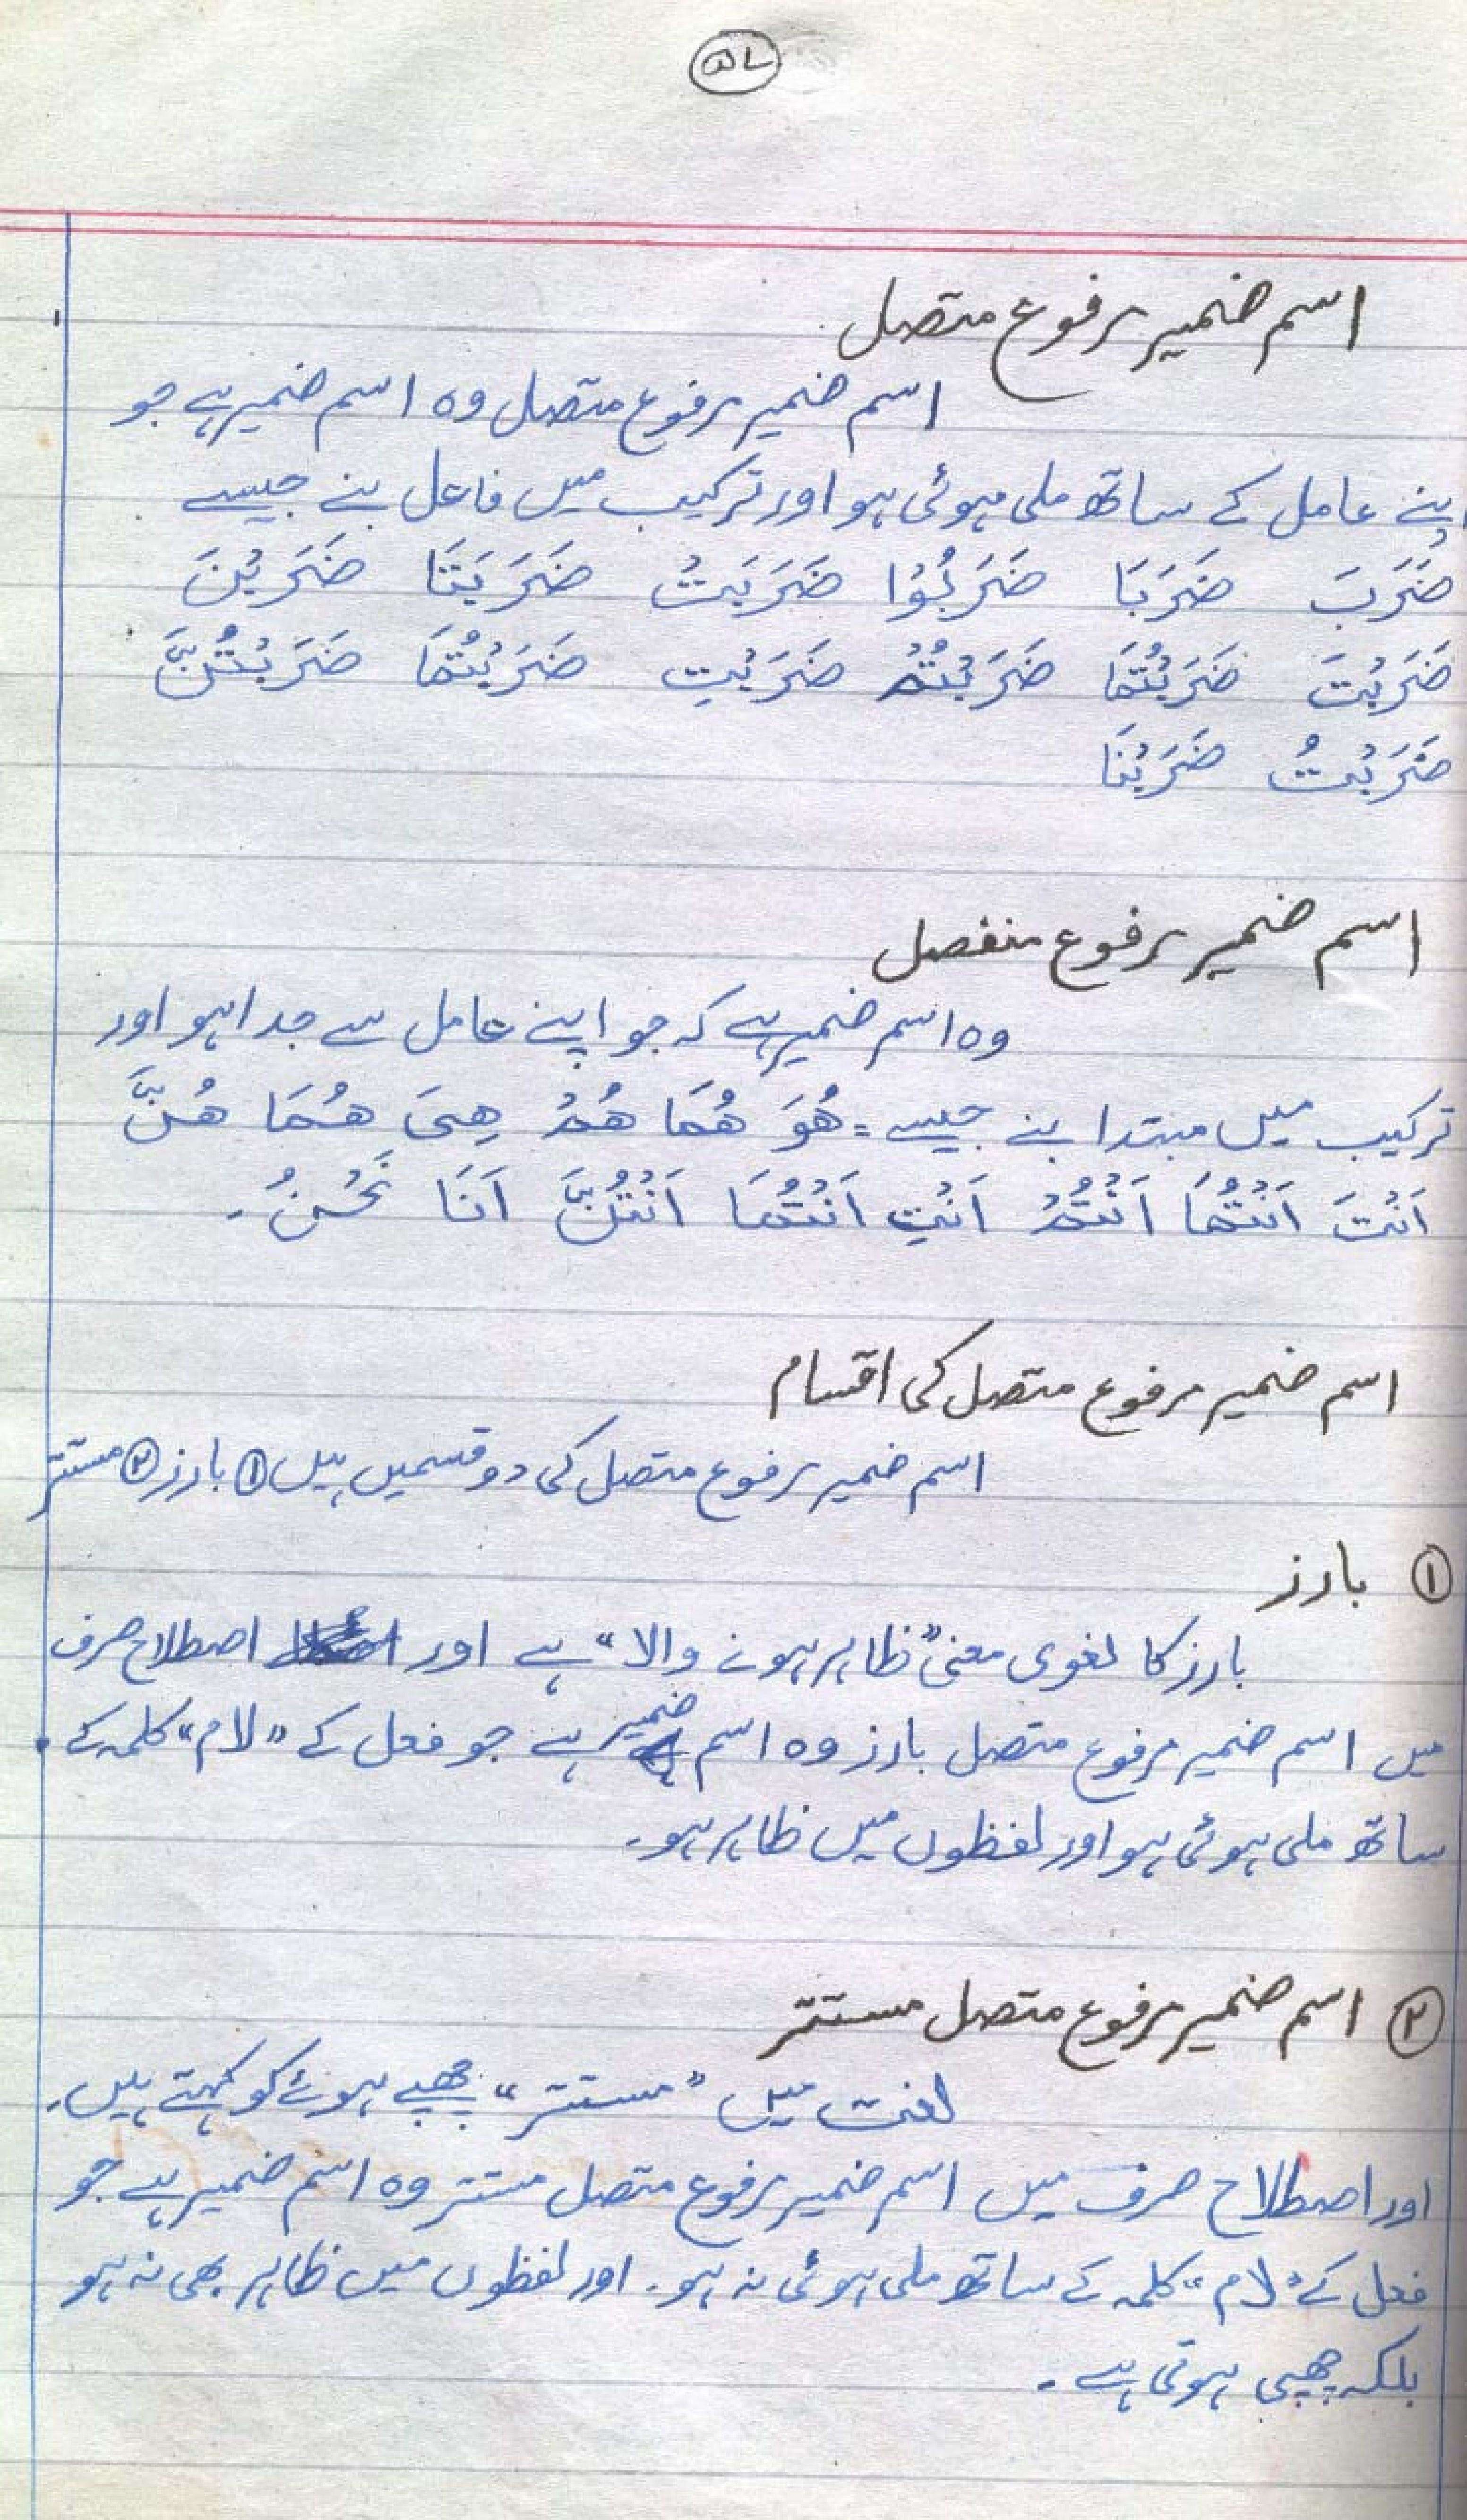 ۵۷
اسم ضمیر مرفوع متصل
اسم ضمیر مرفوع متصل وہ اسم ضمیر ہے جو
اپنے عامل کے ساتھ ملی ہوئی ہو اور ترکیب میں فاعل بنے جیسے
ضَرَبَ ضَرَبَا ضَرَبُوْا ضَرَبَتْ ضَرَبَتَا ضَرَبْنَ
ضَرَبْتَ ضَرَبْتُمَا ضَرَبْتُمْ ضَرَبْتِ ضَرَبْتُمَا ضَرَبْتُنَّ
ضَرَبْتُ ضَرَبْنَا
اسم ضمیر مرفوع منفصل
وہ اسم ضمیر ہے کہ جو اپنے عامل سے جدا ہو اور
ترکیب میں مبتدا بنے جیسے = هُوَ هُمَا هُمْ هِىَ هُمَا هُنَّ
اَنْتَ اَنْتُمَا اَنْتُمْ اَنْتِ اَنْتُمَا اَنْتُنَّ اَنَا نَحْنُ۔
اسم ضمیر مرفوع متصل کی اقسام
اسم ضمیر مرفوع متصل کی دو قسمیں ہیں ① بارز ② مستتر
① بارز
بارز کا لغوی معنیٰ "ظاہر ہونے والا" ہے اور اصطلاح صرف
میں اسم ضمیر مرفوع متصل بارز وہ اسم ضمیر ہے جو فعل کے "لام" کلمہ کے
ساتھ ملی ہوئی ہو اور لفظوں میں ظاہر ہو۔
② اسم ضمیر مرفوع متصل مستتر
لغت میں "مستتر" چھپے ہوئے کو کہتے ہیں۔
اور اصطلاح صرف میں اسم ضمیر مرفوع متصل مستتر وہ اسم ضمیر ہے جو
فعل کے "لام" کلمہ کے ساتھ ملی ہوئی نہ ہو۔ اور لفظوں میں ظاہر بھی نہ ہو
بلکہ چھپی ہوتی ہے۔